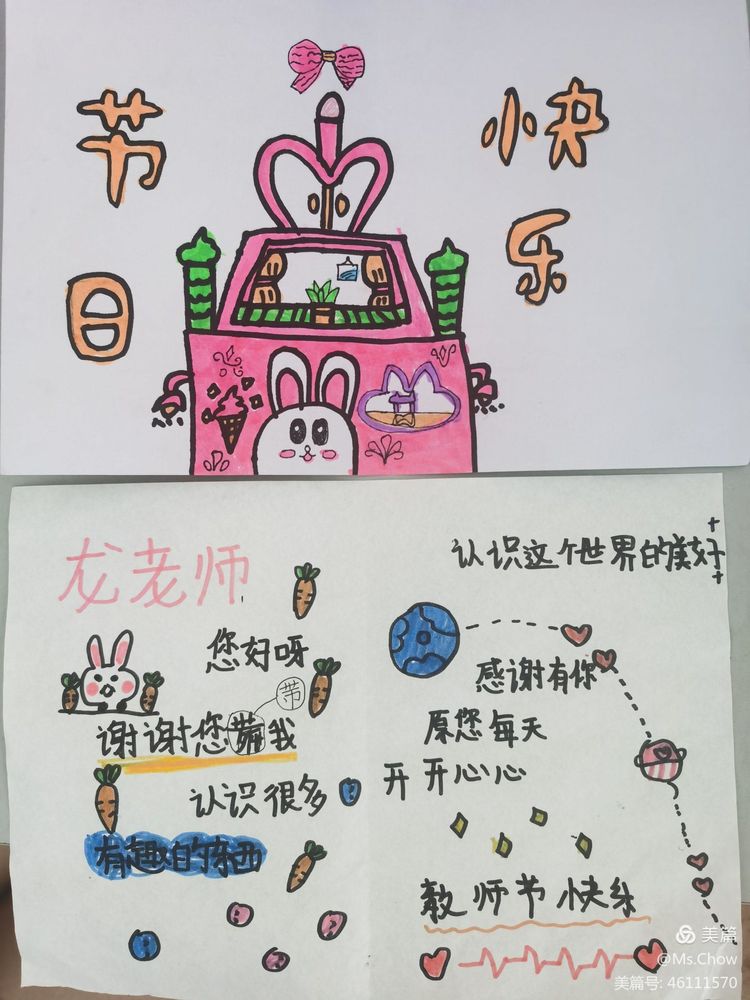 节
日
快
乐
龙老师
您好呀
带
谢谢您带我
认识很多
有趣的东西
认识这个世界的美好
感谢有你
原您每天
开开心心
教师节快乐
美篇
@Ms.Chow
美篇号: 46111570